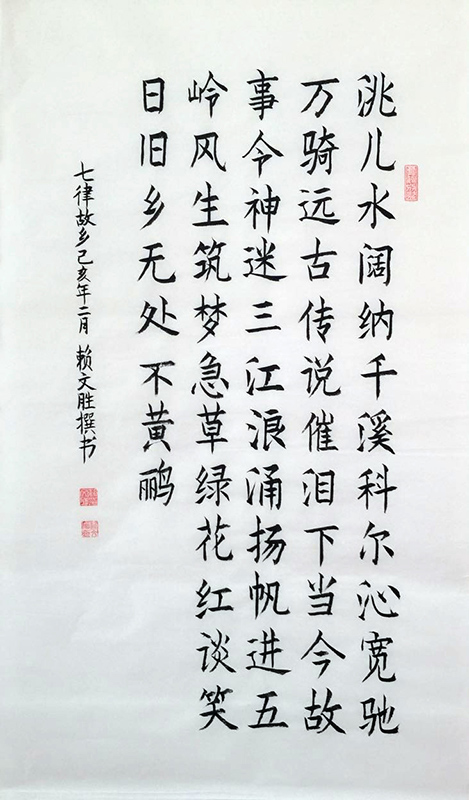 洮儿水阔纳千溪科尔沁宽驰
万骑远古传说催泪下当今故
事令神迷三江浪涌扬帆进五
岭风生筑梦急草绿花红谈笑
日旧乡无处不黄鹂
七律故乡己亥年二月 赖文胜撰书